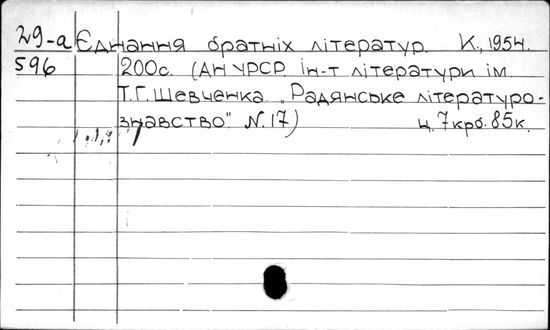 29-а Єднання братніх літератур. К., 1954.
596 200с. (АН УРСР. Ін-т літератури ім.
Т.Г. Шевченка. „Радянське літературо-
знавство" N.17) ц. 7крб. 85к.